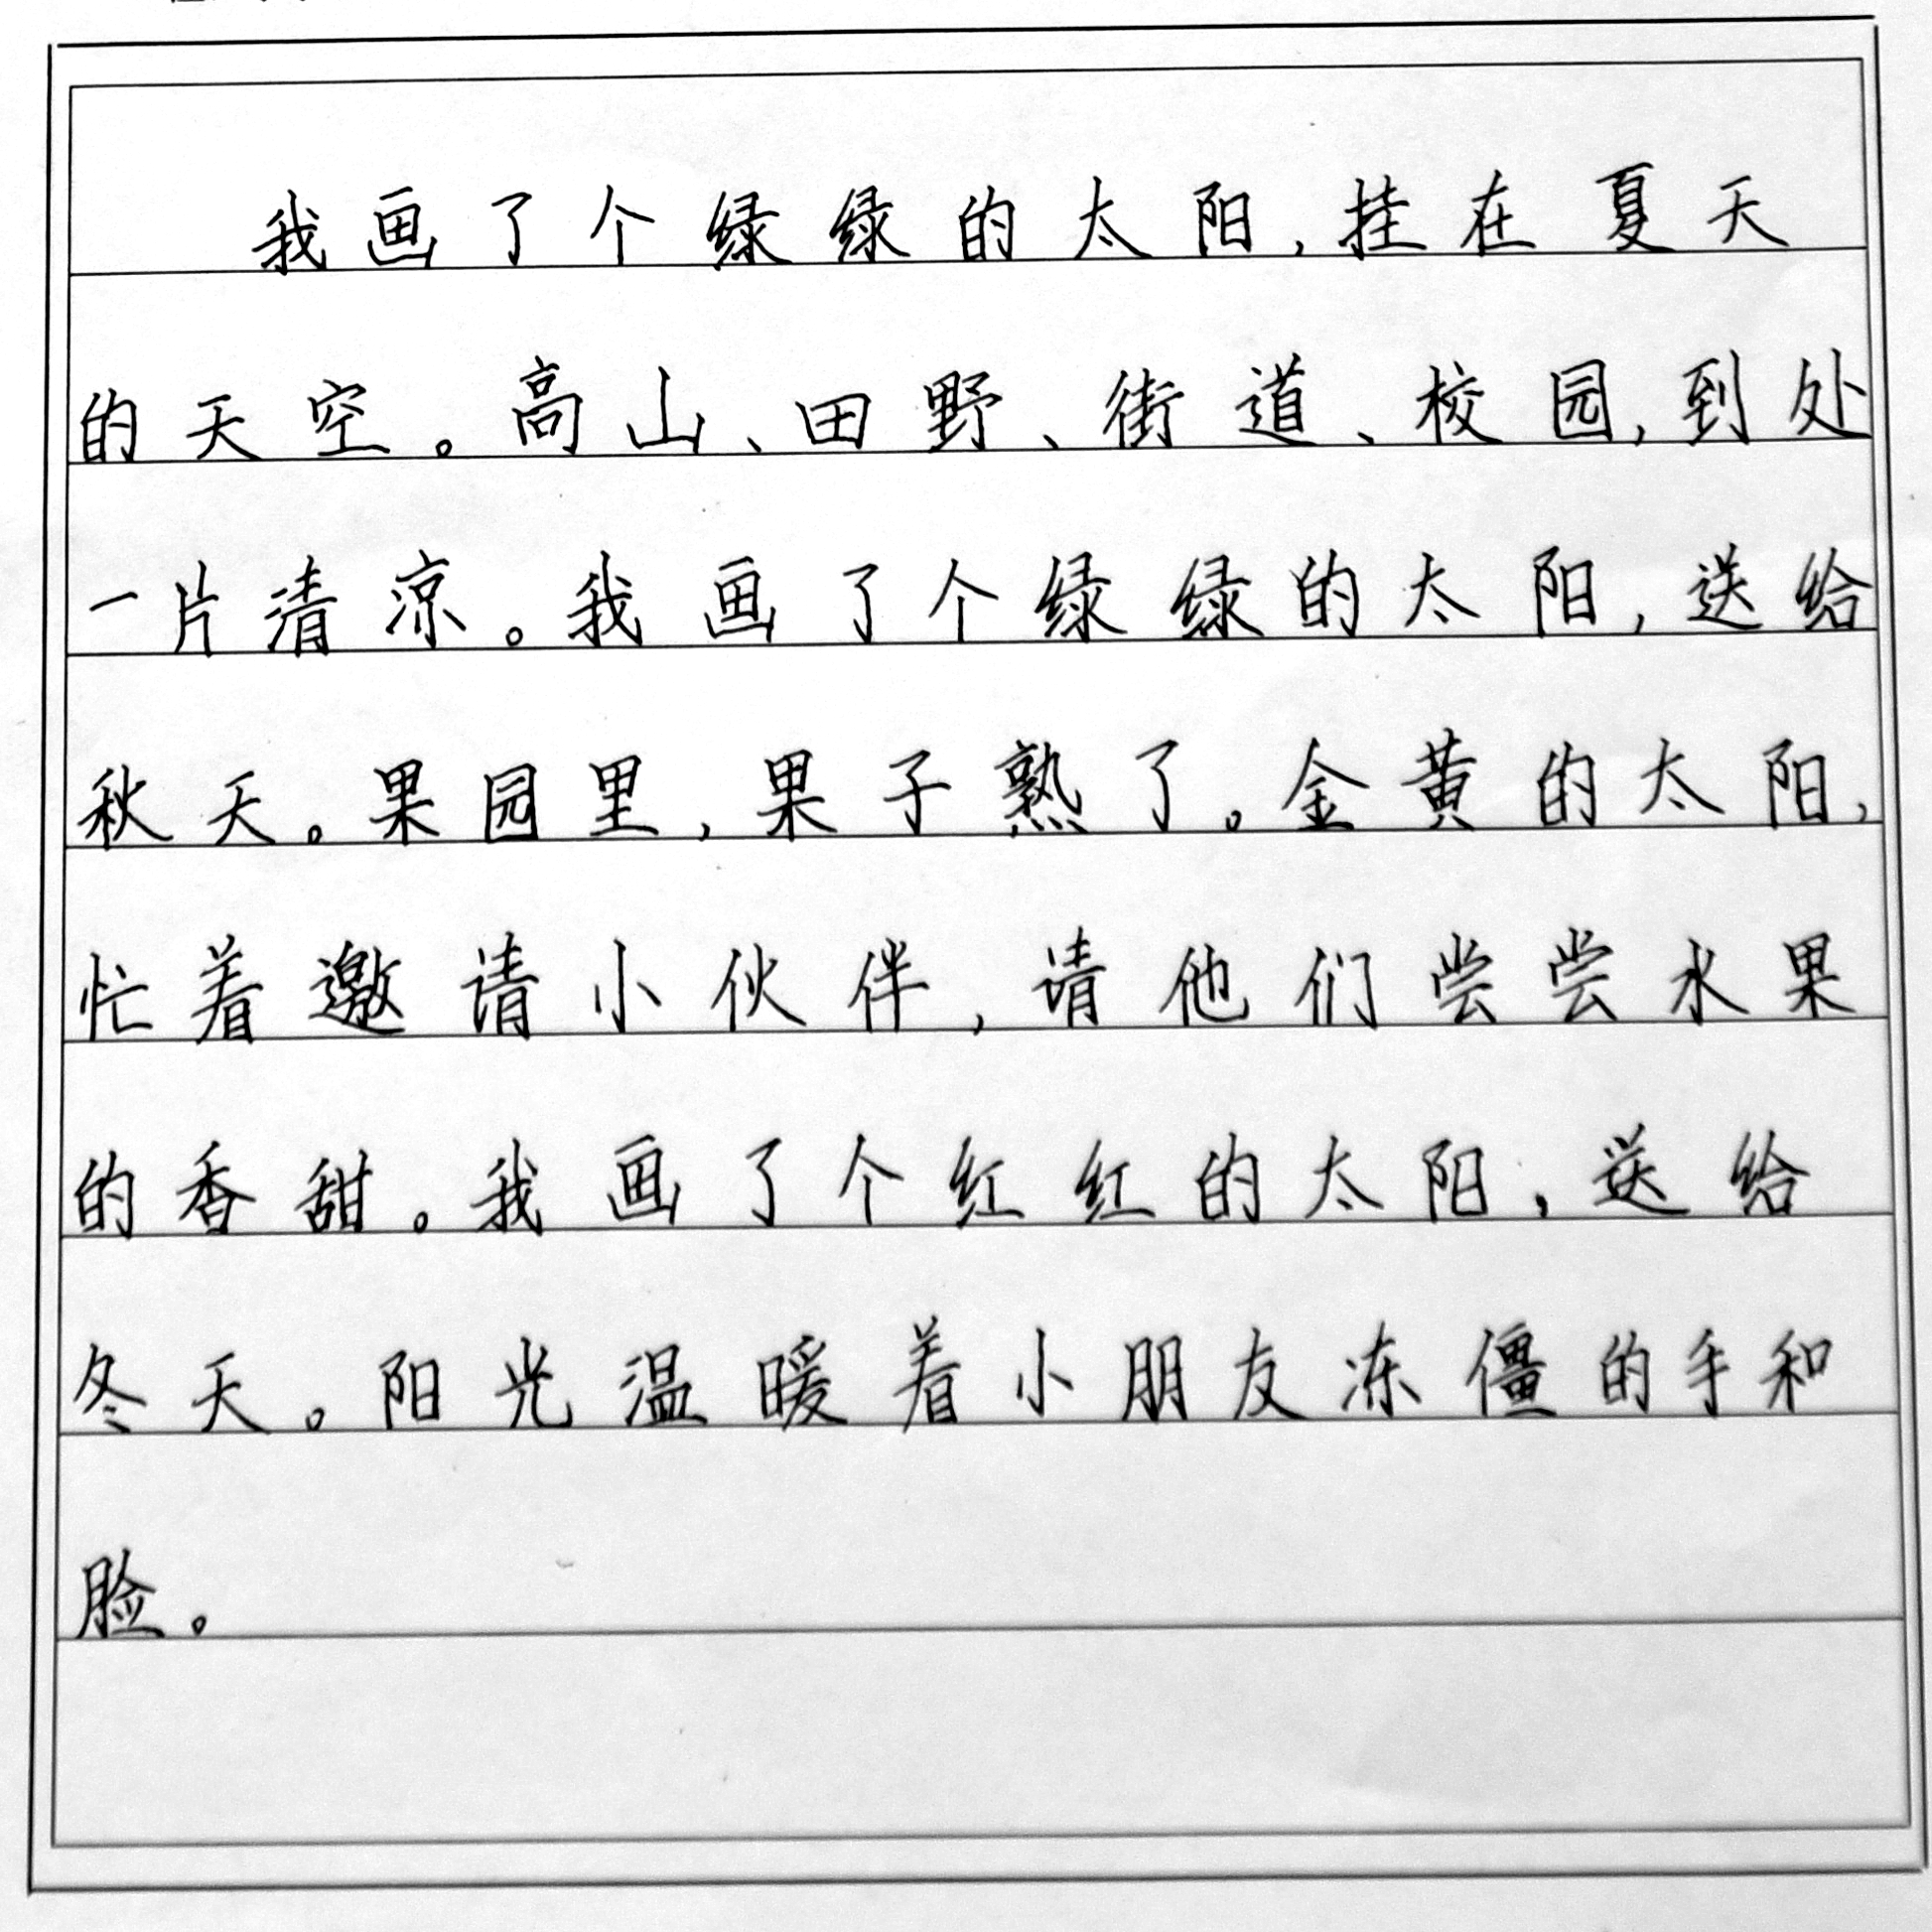 我画了个绿绿的太阳,挂在夏天
的天空。高山、田野、街道、校园,到处
一片清凉。我画了个绿绿的太阳,送给
秋天。果园里,果子熟了。金黄的太阳,
忙着邀请小伙伴,请他们尝尝水果
的香甜。我画了个红红的太阳,送给
冬天。阳光温暖着小朋友冻僵的手和
脸。